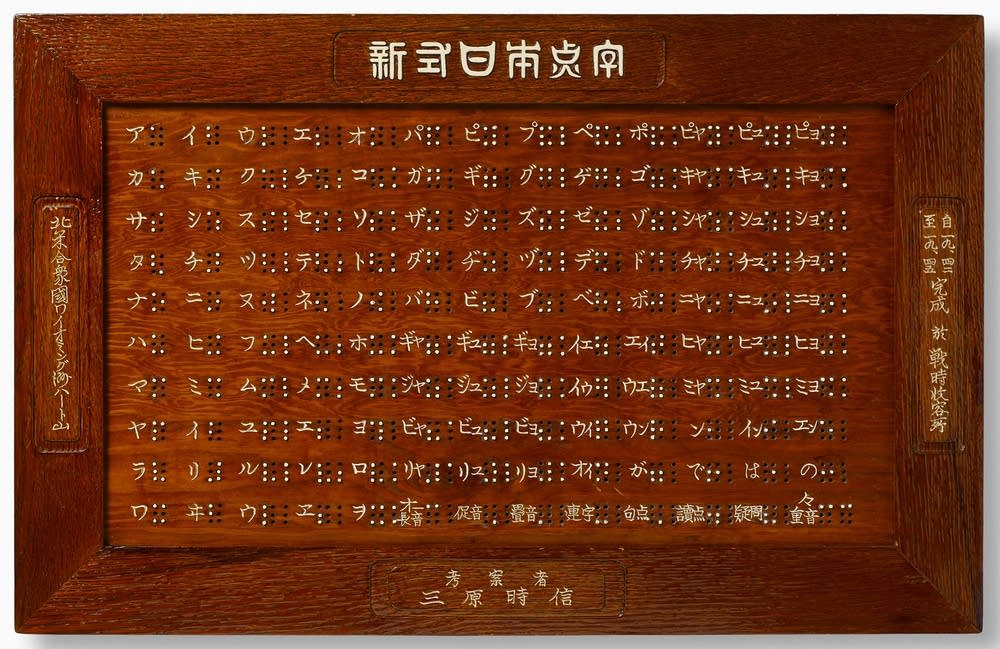 新式日本点字
ア イ ウ エ オ パ ピ プ ペ ポ ピャ ピュ ピョ
カ キ ク ケ コ ガ ギ グ ゲ ゴ キャ キュ キョ
サ シ ス セ ソ ザ ジ ズ ゼ ゾ シャ シュ ショ
タ チ ツ テ ト ダ ヂ ヅ デ ド チャ チュ チョ
ナ ニ ヌ ネ ノ バ ビ ブ ベ ボ ニャ ニュ ニョ
ハ ヒ フ ヘ ホ ギャ ギュ ギョ イェ エィ ヒャ ヒュ ヒョ
マ ミ ム メ モ ジャ ジュ ジョ イゥ ウエ ミャ ミュ ミョ
ヤ イ ユ エ ヨ ビャ ビュ ビョ ウィ ウン ン イン エン
ラ リ ル レ ロ リャ リュ リョ オィ が で は の
ワ ヰ ウ ヱ ヲ オー長音 促音 疊音 連字 句点 讀点 疑問 々重音
北米合衆國ワイオミング洲ハート山
自一九四二
至一九四五
完成 於 戦時收容所
考案者
三原時信